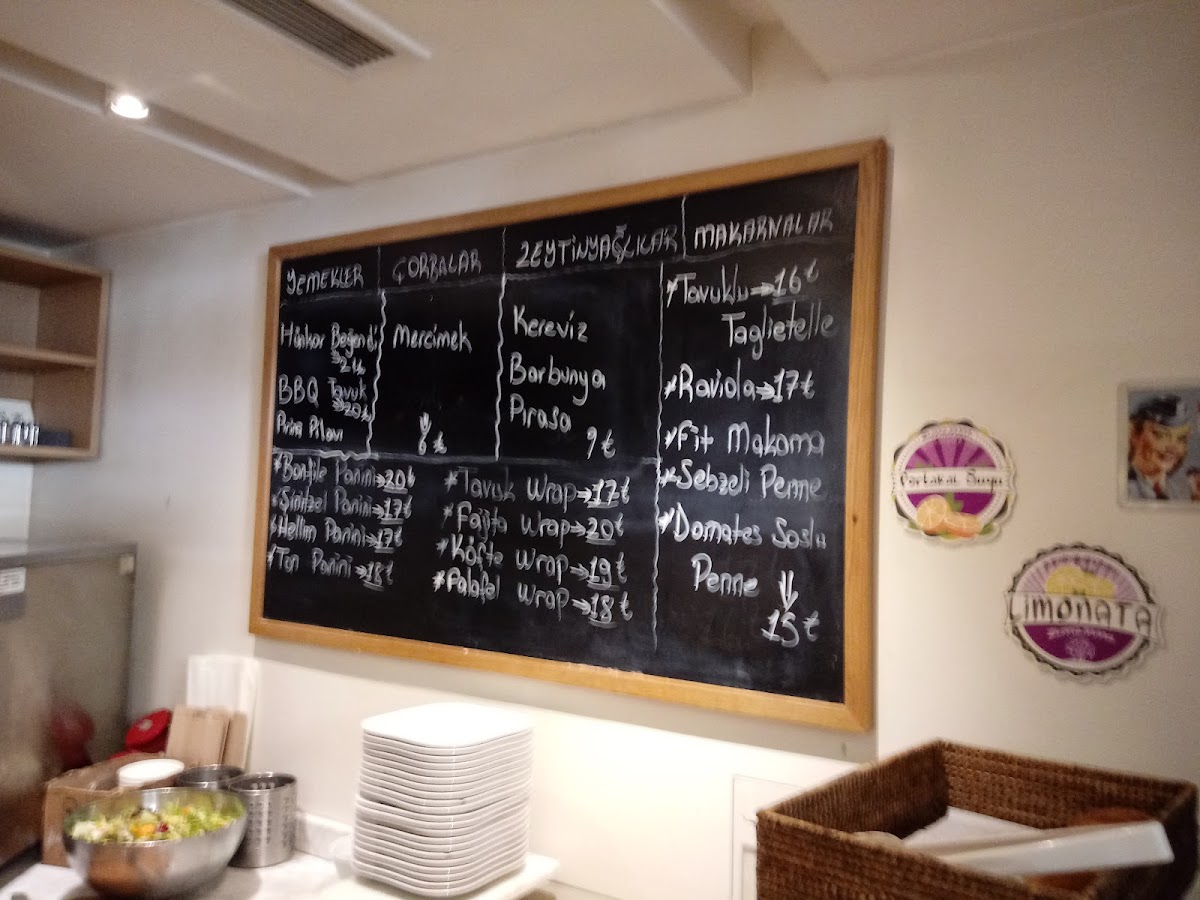 YEMEKLER
Hünkar Beğendi
BBQ Tavuk
→20₺
Pirinç Pilavı
ÇORBALAR
Mercimek
6 ₺
ZEYTİNYAĞLILAR
Kereviz
Barbunya
Pırasa
9 ₺
MAKARNALAR
*Tavuklu→16₺
Taglietelle
*Raviola→17₺
*Fit Makarna
*Sebzeli Penne
*Domates Soslu
Penne
15 ₺
*Bonfile Panini→20₺
*Şinitzel Panini→17₺
*Hellim Panini→17₺
*Ton Panini→18₺
*Tavuk Wrap→17₺
*Fajita Wrap→20₺
*Köfte Wrap→19₺
*Falafel Wrap→18₺
Portakal Suyu
LİMONATA